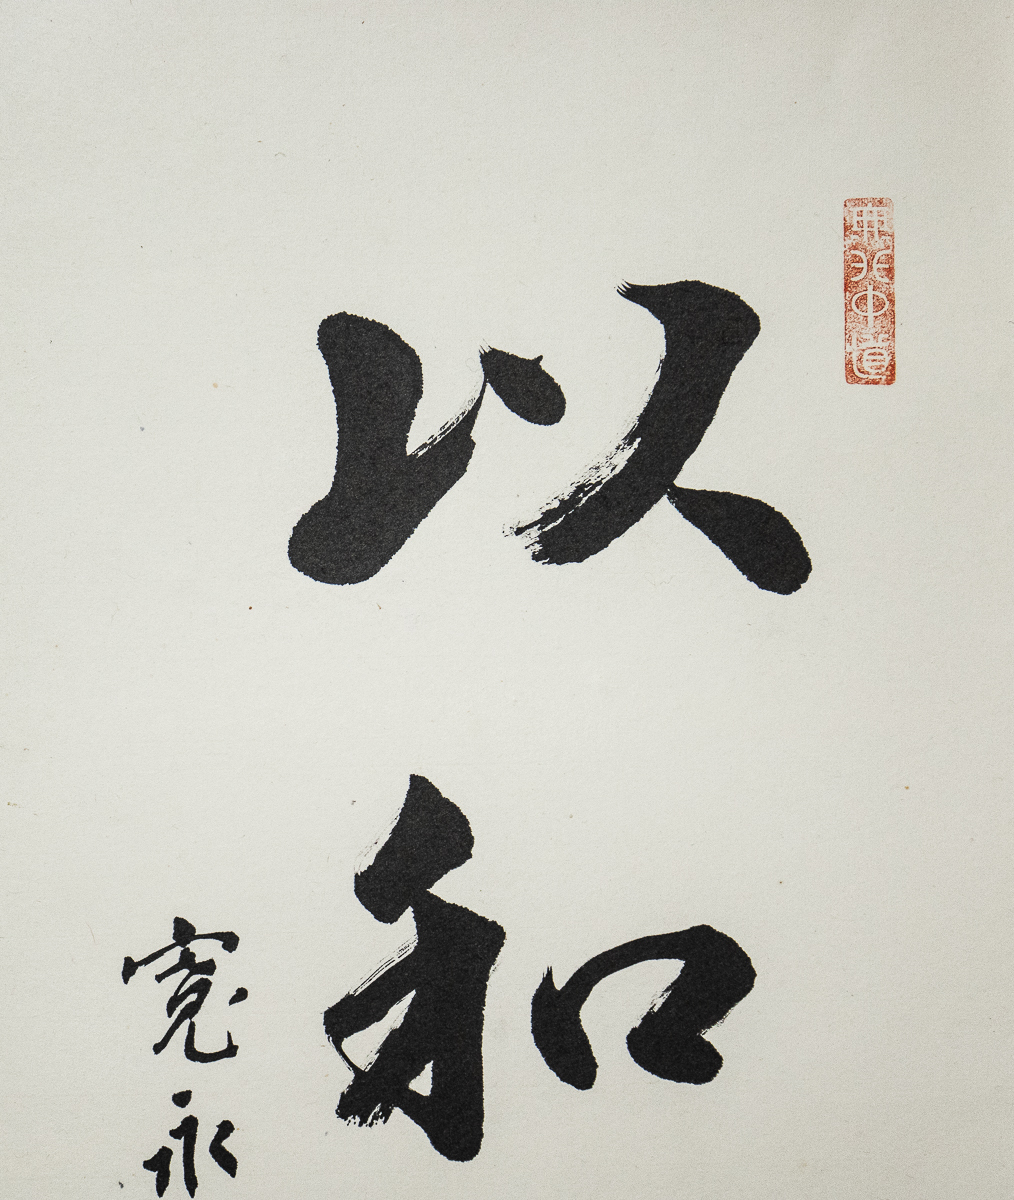 以和
寛永